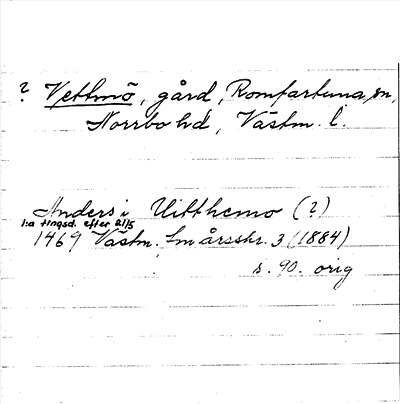 ? Vettmö, gård, Romfartuna sn,
Norrbo hd, Västm. l.
Anders i Vitthemo (?)
1:a tingsd. efter 21/5
1469 Västm. fm årsskr. 3 (1884)
s. 90. orig